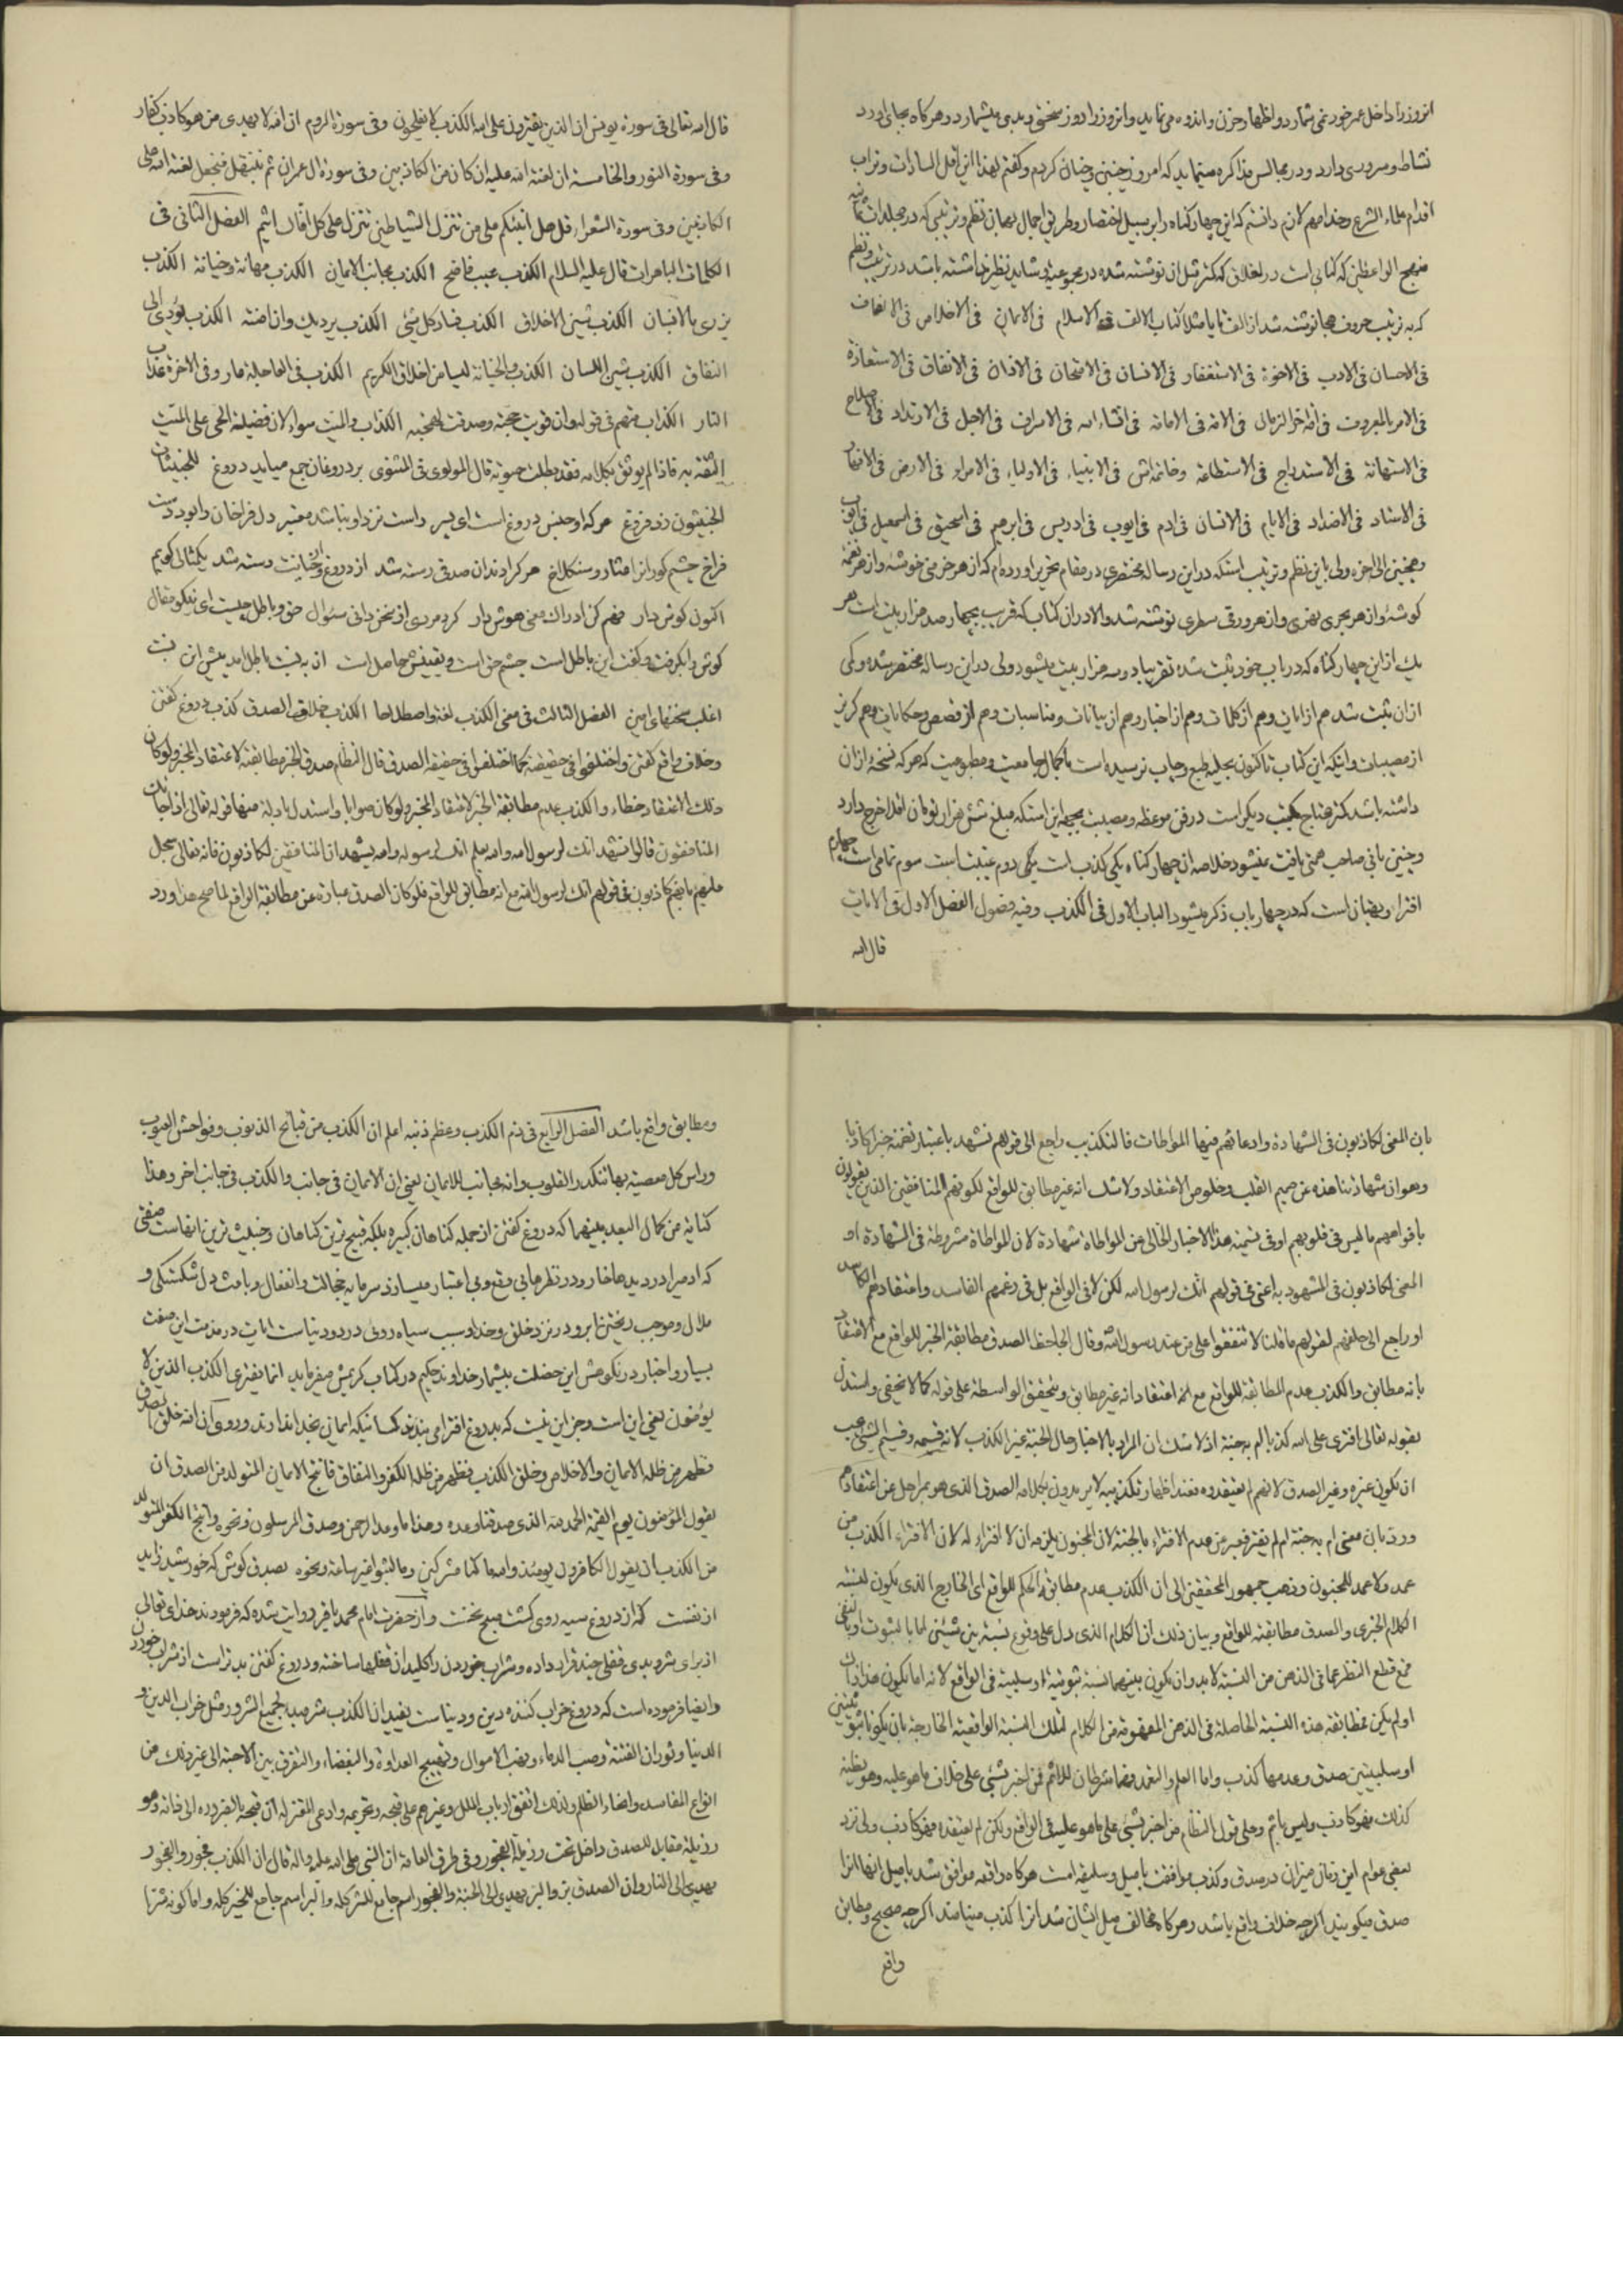 انروز را داخل عمر خود نمی شمارد و اظهار حزن و اندوه می نماید و انروز را روز سختی و بدی میشمارد و هرکاه بجای اورد
نشاط و سروری دارد و در مجالس مذاکره مینماید که امروز چنین و چنان کردم و کفتم لهذا این اقل السادات و تراب
اقدام علماء الشرع و خدامهم لازم دانستم که این چهار کناه را بر سبیل اختصار و طریق اجمال بهمان نظم و ترتیبی که در مجلدات ثمانیه
منهج الواعظین که کتابی است در اخلاق که کمتر مثل ان نوشته شده در مجموعیه و شاید نظیر نداشته باشد در ترتیب و نظم
که به ترتیب حروف هجا نوشته شد از الف تا یا مثلا کتاب الالف فی الاسلام فی الایمان فی الاخلاص فی الانصاف
فی الاحسان فی الادب فی الاخوة فی الاستغفار فی الانسان فی الامتحان فی الاذان فی الانفاق فی الاستعاذة
فی الامر بالمعروف فی اخر الزمان فی الامة فی الامانة فی افشاء السر فی الاسراف فی الاجل فی الارتداد فی الاصلاح
فی الاستهانة فی الاستدراج فی الاستطاعة فی الانبیاء فی الاولیاء فی الامراء فی الارض فی الافتخار
فی الاستاد فی الاضداد فی الایام فی الانسان فی ادم فی ایوب فی ادریس فی ابرهیم فی اسحق فی اسمعیل فی ابواب
و همچنین الی اخره ولی باین نظم و ترتیب استکه در این رساله مختصری در مقام تحریر اورده ام که از هر خرمنی خوشه و از هر نغمه
کوشه و از هر بحری نهری و از هر ورقی سطری نوشته شد والا در ان کتاب که قریب بچهار صد هزار بیت است هر
یک از این چهار کناه که در باب خود ثبت شده تقریبا دو سه هزار بیت میشود ولی در این رساله مختصر شده و کمی
از ان ثبت شد هم از ایات و هم از کلمات و هم از اخبار و هم از بیانات و مناسبات و هم از قصص و حکایات و هم کریز
از مصیبات و اینکه این کتاب تا کنون بحلیه طبع و چاپ نرسیده است با کمال جامعیت و مطبوعیت که هر که نسخه از ان
داشته باشد کمتر محتاج بکتب دیکر است در فن موعظه و مصیبت بجهة این استکه مبلغ شش هزار تومان اقلا خرج دارد
و چنین بانی صاحب همتی یافت نمیشود خلاصه ان چهار کناه یکی کذب است یکی دوم غیبت است سوم نمامی است چهارم
افتراء و بهتان است که در چهار باب ذکر میشود الباب الاول فی الکذب و فیه فصول الفصل الاول فی الایات
قال الله
قال الله تعالی فی سورة یونس ان الذین یفترون علی الله الکذب لا یفلحون و فی سورة الزمر ان الله لا یهدی من هو کاذب کفار
و فی سورة النور و الخامسة ان لعنة الله علیه ان کان من الکاذبین و فی سورة ال عمران ثم نبتهل فنجعل لعنة الله علی
الکاذبین و فی سورة الشعراء قل هل انبئکم علی من تنزل الشیاطین تنزل علی کل افاک اثیم الفصل الثانی فی
الکلمات الباهرات قال علیه السلام الکذب عیب فاضح الکذب یجانب الایمان الکذب مهانة و خیانة الکذب
یزری بالانسان الکذب شین الاخلاق الکذب فساد کل شئ الکذب یردیک وان امنته الکذب یؤدی الی
النفاق الکذب شین اللسان الکذب و الخیانة لیسا من اخلاق الکریم الکذب فی العاجلة عار و فی الاخرة عذاب
النار الکذاب متهم فی قوله وان قویت حجته و صدقت لهجته الکذاب والمیت سواء لان فضیلة الحی علی المیت
الثقة به فاذا لم یوثق بکلامه فقد بطلت حیوته قال المولوی فی المثنوی بر دروغان جمع میاید دروغ للخبیثات
الخبیثون زد فروغ هر که او جنس دروغ است ای پسر راست نزد او نباشد معتبر دل فراخان را بود دست
فراخ چشم کوران را عثار و سنکلاخ هر کرا دندان صدقی رسته شد از دروغ و از خیانت رسته شد یک مثالی کویم
اکنون کوش دار فهم کن ادراک معنی هوش دار کرد مردی از سخن دانی سئوال حق و باطل چیست ای نیکو مقال
کوش را بکرفت و کفت این باطل است چشم حق است و یقینش حاصل است ان به نسبت باطل امد پیش این نسبت
اغلب سخنها ی امین الفصل الثالث فی معنی الکذب لغة و اصطلاحا الکذب خلاف الصدق کذب دروغ کفتن
و خلاف واقع کفتن و اختلفوا فی حقیقته کما اختلفوا فی حقیقة الصدق قال النظام صدق الخبر مطابقته لاعتقاد المخبر و لو کان
ذلک الاعتقاد خطاء و الکذب عدم مطابقة الخبر لاعتقاد المخبر و لو کان صوابا و استدل بادلة منها قوله تعالی اذا جائک
المنافقون قالوا نشهد انک لرسول الله و الله یعلم انک لرسوله و الله یشهد ان المنافقین لکاذبون فانه تعالی سجل
علیهم بانهم کاذبون فی قولهم انک لرسول الله مع انه مطابق للواقع فلو کان الصدق عبارة عن مطابقة الواقع لما صح هذا ورد
بان المعنی لکاذبون فی الشهادة و ادعائهم فیها المواطات فالتکذیب راجع الی قولهم نشهد باعتبار تضمنه خبرا کاذبا
و هو ان شهادتنا هذه عن صمیم القلب و خلوص الاعتقاد و لا شک انه غیر مطابق للواقع لکونهم المنافقین الذین یقولون
بافواههم ما لیس فی قلوبهم او فی تسمیة هذا الاخبار الخالی عن المواطاة شهادة لان المواطاة مشروطة فی الشهادة او
المعنی لکاذبون فی المشهود به اعنی فی قولهم انک لرسول الله لکن لا فی الواقع بل فی زعمهم الفاسد و اعتقادهم الکاسد
او راجع الی حلفهم لقولهم ما قلنا لا تنفقوا علی من عند رسول الله و قال الجاحظ الصدق مطابقة الخبر للواقع مع الاعتقاد
بانه مطابق و الکذب عدم المطابقة للواقع مع اعتقاد انه غیر مطابق و یتحقق الواسطة علی قوله کما لا یخفی و استدل
بقوله تعالی افتری علی الله کذبا ام به جنة اذ لا شک ان المراد بالاخبار حال الجنة غیر الکذب لانه قسیمه و قسیم الشئ یجب
ان یکون غیره و غیر الصدق لانهم لم یعتقدوه فعند اظهار تکذیبه لا یریدون بکلامه الصدق الذی هو بمراحل عن اعتقادهم
ورد بان معنی ام به جنة ام لم یفتر فعبر عن عدم الافتراء بالجنة لان المجنون یلزمه ان لا افتراء له لان الافتراء الکذب من
عمد و لا عمد للمجنون و ذهب جمهور المحققین الی ان الکذب عدم مطابقة الحکم للواقع ای الخارج الذی یکون لنسبة
الکلام الخبری و الصدق مطابقته للواقع و بیان ذلک ان الکلام الذی دل علی وقوع نسبة بین شیئین اما بالثبوت او بالنفی
مع قطع النظر عما فی الذهن من النسبة لا بد وان یکون بینهما نسبة ثبوتیة او سلبیة فی الواقع لانه اما یکون هذا ذاک
او لم یکن فمطابقة هذه النسبة الحاصلة فی الذهن المفهومة من الکلام لتلک النسبة الواقعیة الخارجة بان یکونا ثبوتیتین
او سلبیتین صدق و عدمها کذب و اما العلم و التعمد فهما شرطان للاثم فمن اخبر بشئ علی خلاف ما هو علیه و هو یظنه
کذلک فهو کاذب و لیس باثم و علی قول النظام من اخبر بشئ علی ما هو علیه فی الواقع و لکن لم یعتقده فهو کاذب ولی نزد
بعضی عوام این زمان میزان در صدق و کذب موافقت با میل و سلیقه است هر کاه واقعه موافق شد با میل انها انرا
صدق میکویند اکرچه خلاف واقع باشد و هر کاه مخالف میل ایشان شد انرا کذب مینامند اکرچه صحیح و مطابق
واقع
و مطابق واقع باشد الفصل الرابع فی ذم الکذب و عظم ذنبه اعلم ان الکذب من قبائح الذنوب و فواحش العیوب
و راس کل معصیة بها تتکدر القلوب و انه مجانب للایمان یعنی ان الایمان فی جانب و الکذب فی جانب اخر و هذا
کنایة من کمال البعد بینهما که دروغ کفتن از جمله کناهان کبیره بلکه قبیح ترین کناهان و خبیث ترین انهاست صفتی
که ادمی را در دیده ها خار و در نظرها بی وقع و بی اعتبار میسازد سرمایه خجالت و انفعال و باعث دل شکستکی و
ملال و موجب ریختن ابرو در نزد خلق و خدا و سبب سیاه روئی در دو دنیا است ایات در مذمت این صفت
بسیار و اخبار در نکوهش این خصلت بیشمار خداوند حکیم در کتاب کریمش میفرماید انما یفتری الکذب الذین لا
یؤمنون یعنی این است و جز این نیست که بدروغ افترا می بندند کسانیکه ایمان بخدا ندارند و روی ان الله خلق الصدق
فظهر من ظله الایمان و الاخلاص و خلق الکذب فظهر من ظله الکفر و النفاق فانتج الایمان المتولد من الصدق ان
یقول المؤمنون یوم القیمة الحمد لله الذی صدقنا وعده و هذا ما وعد الرحمن و صدق المرسلون و نحوه و انتج الکفر المتولد
من الکذب ان یقول الکافرون یومئذ و الله ما کنا مشرکین و ما لبثوا غیر ساعة و نحوه بصدق کوش که خورشید زاید
از نفست که از دروغ سیه روی کشت صبح نخست و از حضرت امام محمد باقر روایت شده که فرمودند خدای تعالی
از برای شر و بدی قفلی چند قرار داده و شراب خوردن را کلید ان قفلها ساخته و دروغ کفتن بدتر است از شراب خوردن
و ایضا فرموده است که دروغ خراب کننده دین و دنیا است یفید ان الکذب مشر مبدء لجمیع الشرور مثل خراب الدین و
الدنیا و ثوران الفتنة و صب الدماء و نهب الاموال و تهییج العداوة و البغضاء و التفرق بین الاحبة الی غیر ذلک من
انواع المفاسد و انحاء الظلم و لذلک اتفق ارباب الملل و غیرهم علی قبحه و تحریمه و ادعی المعتزلة ان قبحه بالضرورة الی ذاته و هو
رذیلة مقابل للصدق داخل تحت رذیلة الفجور و فی طرق العامة ان النبی صلی الله علیه و اله قال ان الکذب فجور و الفجور
یهدی الی النار وان الصدق بر و البر یهدی الی الجنة و الفجور اسم جامع للشر کله و البر اسم جامع للخیر کله و اما کونه شرا